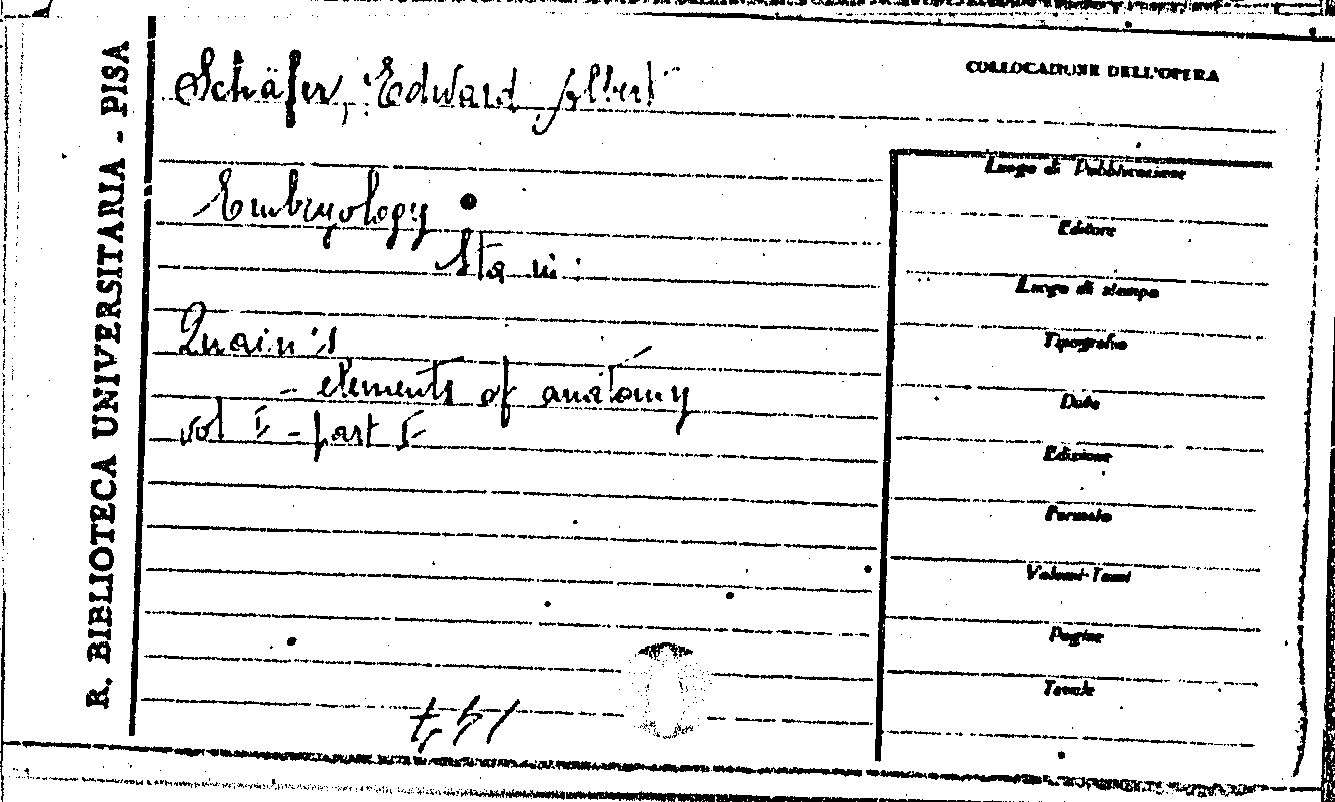 R. BIBLIOTECA UNIVERSITARIA - PISA
Schäfer, Edward Albert
COLLOCAZIONE DELL'OPERA
Embryology
Sta in:
Quain's
- elements of anatomy
vol I - part I
Luogo di Pubblicazione
Editore
Luogo di stampa
Tipografo
Data
Edizione
Formato
Volumi-Tomi
Pagine
Tavole